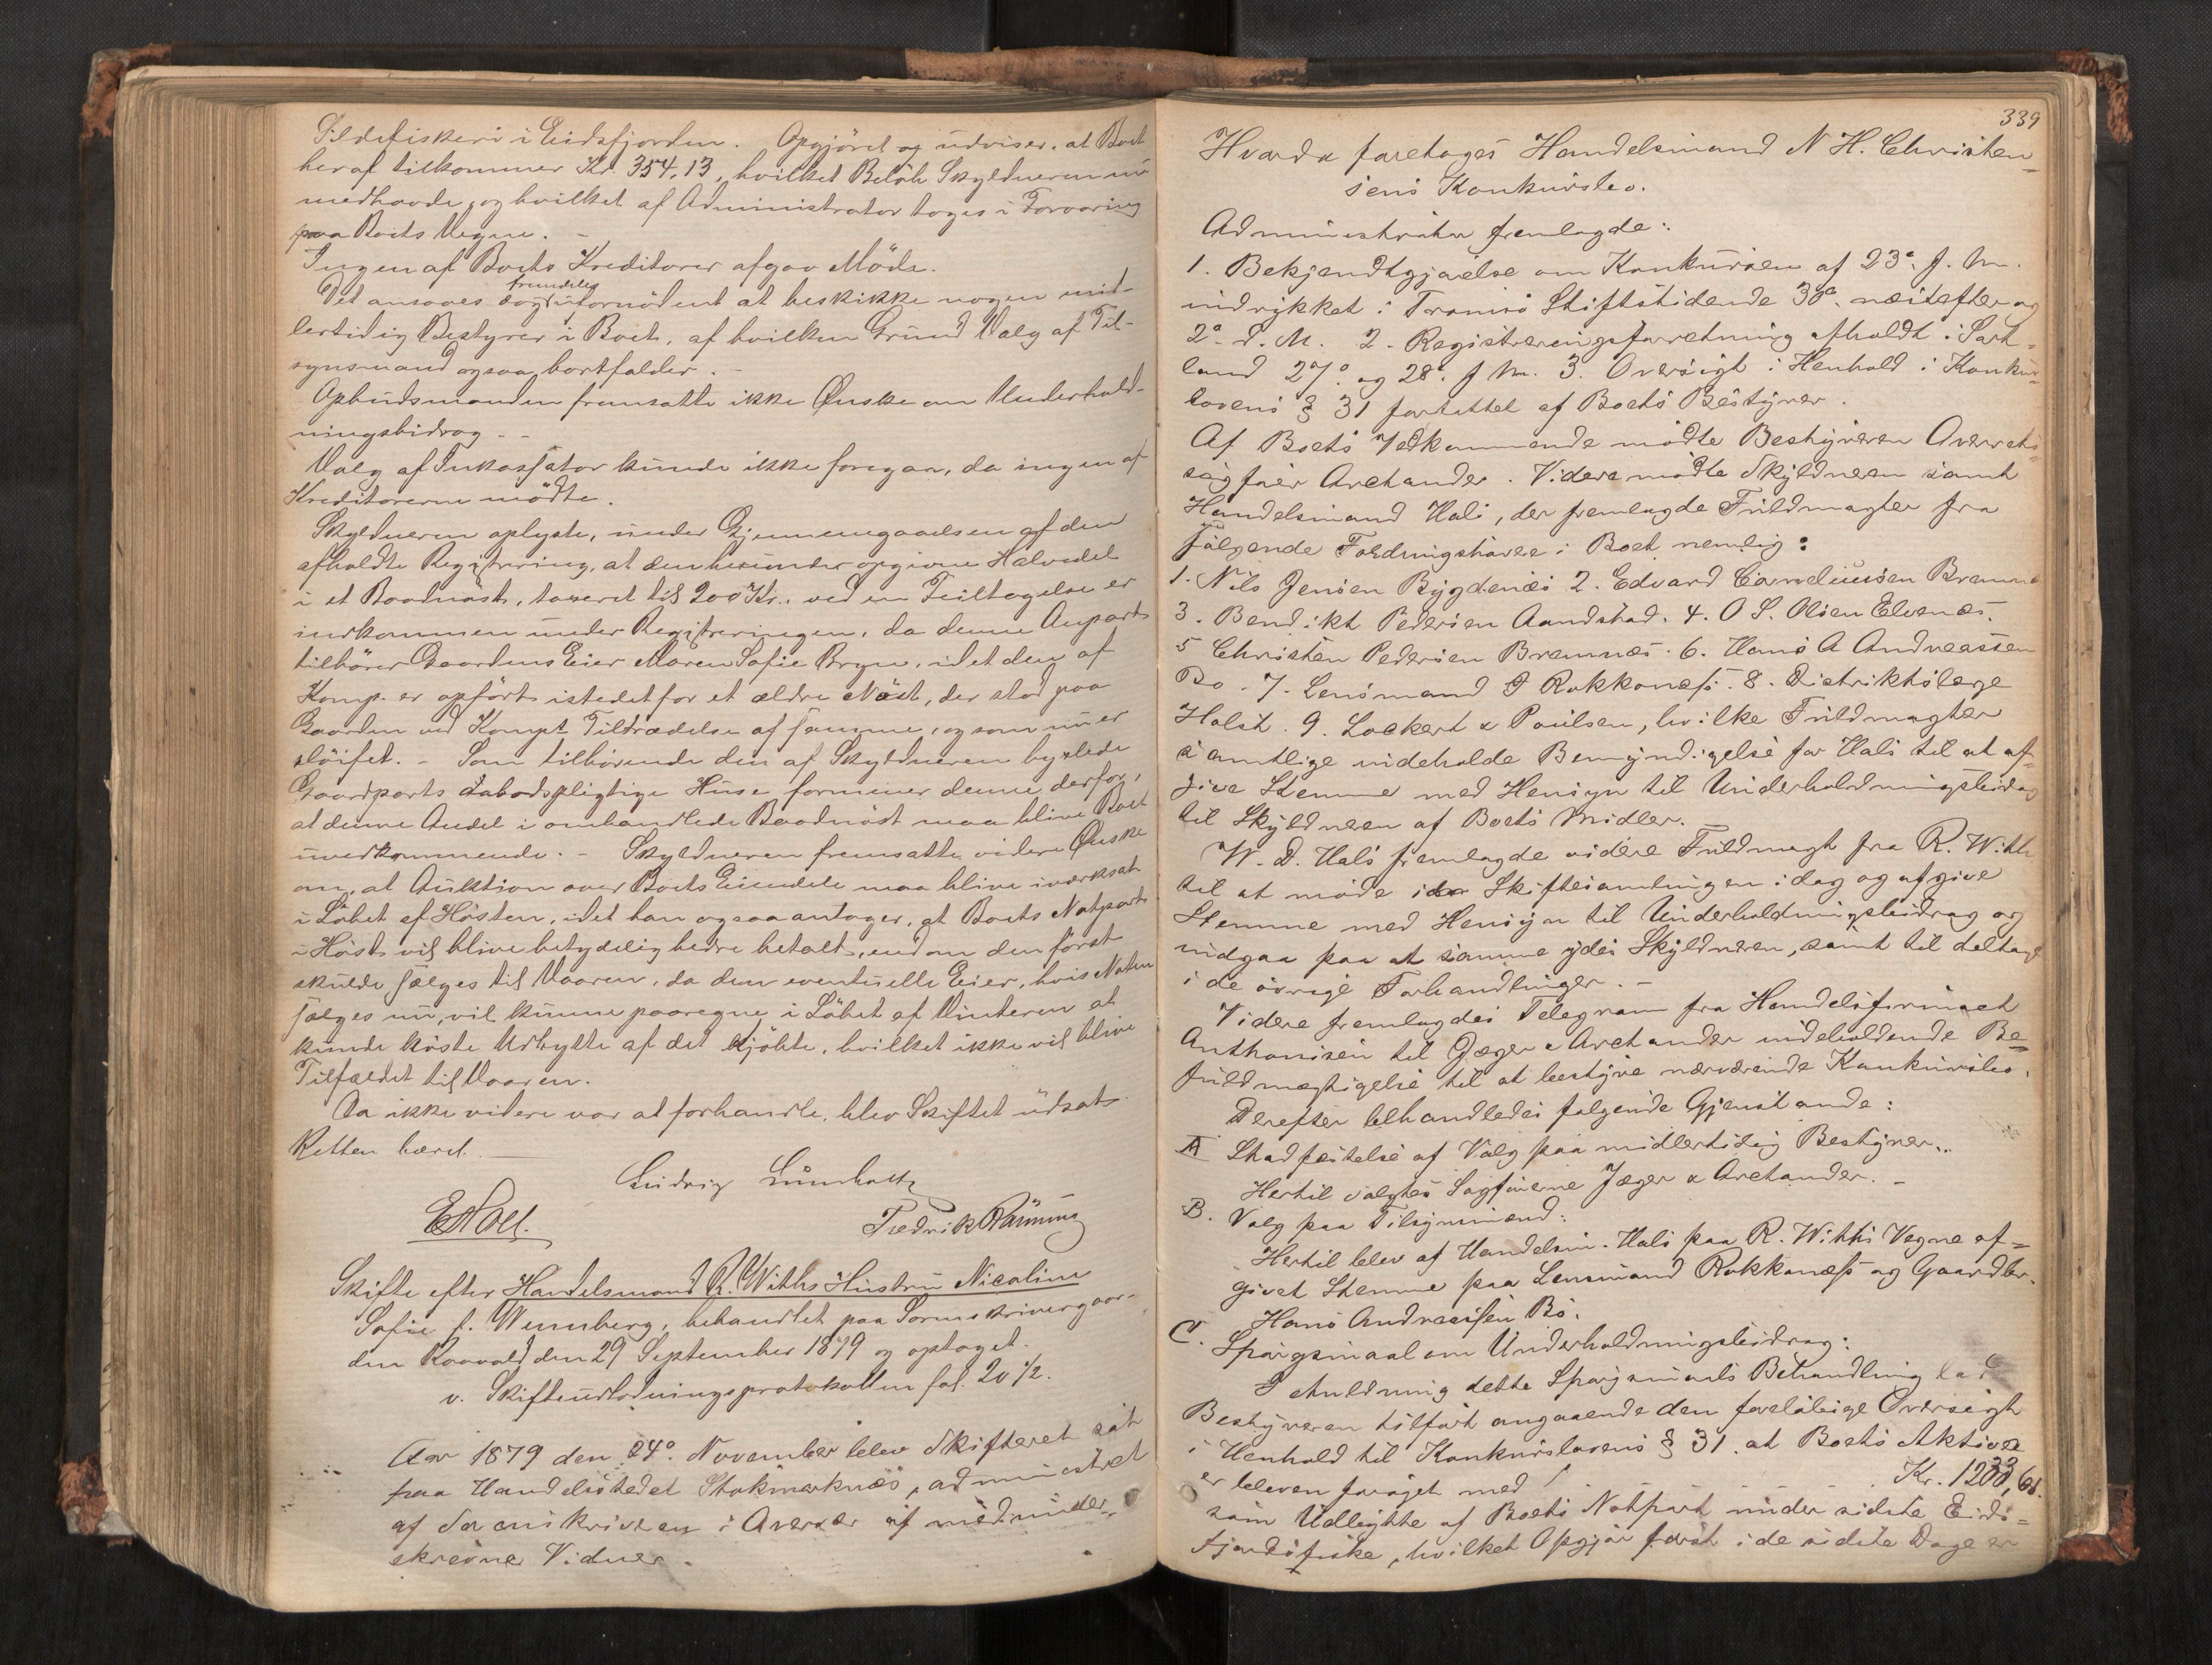 Sildefiskeri i Eidsfjorden. Opgjöret og udviser, at Boet
heraf tilkommer Kr. 354.13, hvilket Belöb Skyldneren nu
medhavde, og hvilket af Administrator toges i Forvaring
paa Boets Vegne. –
Ingen af Boets Kreditorer afgav Möde.
Det ansaaes fremdeles ufornödent at beskikke nogen mid-
lertidig Bestyrer i Boet, af hvilken Grund Valg af Til-
synsmand ogsaa bortfalder. –
Opbudsmanden fremsatte ikke Ønske om Underhold-
ningsbidrag. –
Valg af Inkassator kunde ikke foregaa, da ingen af
Kreditorerne mödte.
Skyldneren oplyste, under Gjennemgaaelsen af den
afholdte Registrering, at den herunder opgivne Halvdel
i et Baadnöst, taxeret til 200 Kr., ved en Feiltagelse er
indkommen under Registreringen, da denne Anpart
tilhörer Gaardens Eier Maren Sofie Bryn, idet den af
Komp. er opfört istedetfor et ældre Nöst, der stod paa
Gaarden ved Komps Tiltrædelse af samme, og som nu er
slöifet. – Som tilhörende den af Skyldneren bygslede
Gaardparts aabodspligtige Huse formener denne derfor,
at denne Andel i omhandlede Baadnöst maa blive Boet
uvedkommende. – Skyldneren fremsatte videre Ønske
om, at Auktion over Boets Eiendele maa blive iværksat
i Löbet af Hösten, idet han ogsaa antager, at Boets Notpart
i Höst vil blive betydelig bedre betalt, end om den först
skulde sælges til Vaaren, da den eventuelle Eier, hvis Noten
sælges nu, vil kunne paaregne i Löbet af Vinteren at
kunde höste Udbytte af det kjöbte, hvilket ikke vil blive
Tilfældet til Vaaren.
Da ikke videre var at forhandle, blev Skiftet udsat.
Retten hævet. –
Ludvig Lumholtz
Fredrik Ränning
Skifte efter Handelsmand R. Withs Hustru Nicoline
Sofie f. Wennberg, behandlet paa Sorenskrivergaar-
den Raavold den 29 September 1879 og optaget.
v. Skifteudlodningsprotokollen fol. 20 1/2.
Aar 1879 den 24de November blev Skifteret sat
paa Handelsstedet Stokmarknæs, administret
af Sorenskriveren i Overvær af medunder-
skrevne Vidner.
339
Hvorda foretoges Handelsmand N H. Christen
sens Konkursbo.
Administrator fremlagde:
1. Bekjendtgjørelse om Konkursen af 23de f. M.
indrykket i Tromsø Stiftstidende 30te næstefter og
2den d. M. 2. Registreringsforretning afholdt i Sort=
land 27de og 28de f M. 3. Oversigt i Henhold i Konkurs
lovens § 31 forfattet af Boets Bestyrer.
Af Boets Vedkommende mødte Bestyreren Overrets=
sagfører Arctander. Videre mødte Skyldneren samt
Handelsmand Hals, der fremlagde Fuldmagter fra
følgende Fordringshavere i Boet nemlig:
1. Nils Jensen Bygdenæs 2. Edvard Corneliussen Bremnæs
3. Bendikt Pedersen Aandstad. 4. O S. Olsen Elvenæs.
5 Christen Pedersen Bremnæs. 6. Hans A Andreassen
Bø. 7. Lensmand J Rokkones. 8. Distriktslæge
Holst. 9. Lockert & Paulsen, hvilke Fuldmagter
samtlige indeholde Bemyndigelse for Hals til at af=
give Stemme med Hensyn til Underholdningsbidrag
til Skyldneren af Boets Midler. –
W. D. Hals fremlagde videre Fuldmagt fra R. With
til at møde i Skiftesamlingen i dag og afgive
Stemme med Hensyn til Underholdningsbidrag og
indgaa paa at samme ydes Skyldneren, samt til deltage
i de øvrige Forhandlinger. –
Videre fremlagdes Telegram fra Handelsfirmaet
Anthonisen til Jæger & Arctander indeholdende Be=
fuldmægtigelse til at bestyre nærværende Konkursbo.
Derefter behandledes følgende Gjenstande:
A Stadfæstelse af Valg paa midlertidig Bestyrer.
Hertil valgtes Sagførerne Jæger & Arctander. –
B. Valg paa Tilsynsmænd:
Hertil blev af Handelsm. Hals paa R. Withs Vegne af=
givet Stemme paa Lensmand Rokkones og Gaardbr.
Hans Andreassen Bø.
C. Spørgsmaal om Underholdningsbidrag:
I Anledning dette Spørgsmaals Behandling lod
Bestyreren tilført angaaende den foreløbige Oversigt
i Henhold til Konkurslovens § 31. at Boets Aktiva
er bleven forøget med Kr. 1233,61.
som Udbytte af Boets Notpart under sidste Eids=
fjordsfiske, hvilket Opgjør først i de sidste Dage er